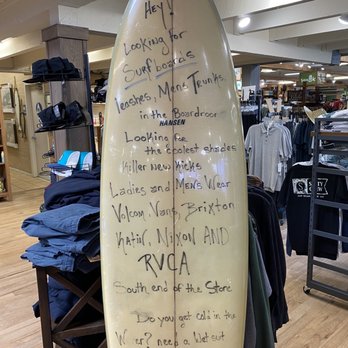 HEY!
Looking for
Surfboards
Leashes, Mens Trunks.
in the Boardroor
HANSEN
Looking for the
Coolest shades
Killer New Kicks
Ladies and Mens Wear
Volcom, Vans, Brixton
Katin, Nixon AND
RVCA
South end of the Store
Do you get cold in the
Water? need a Wetsuit